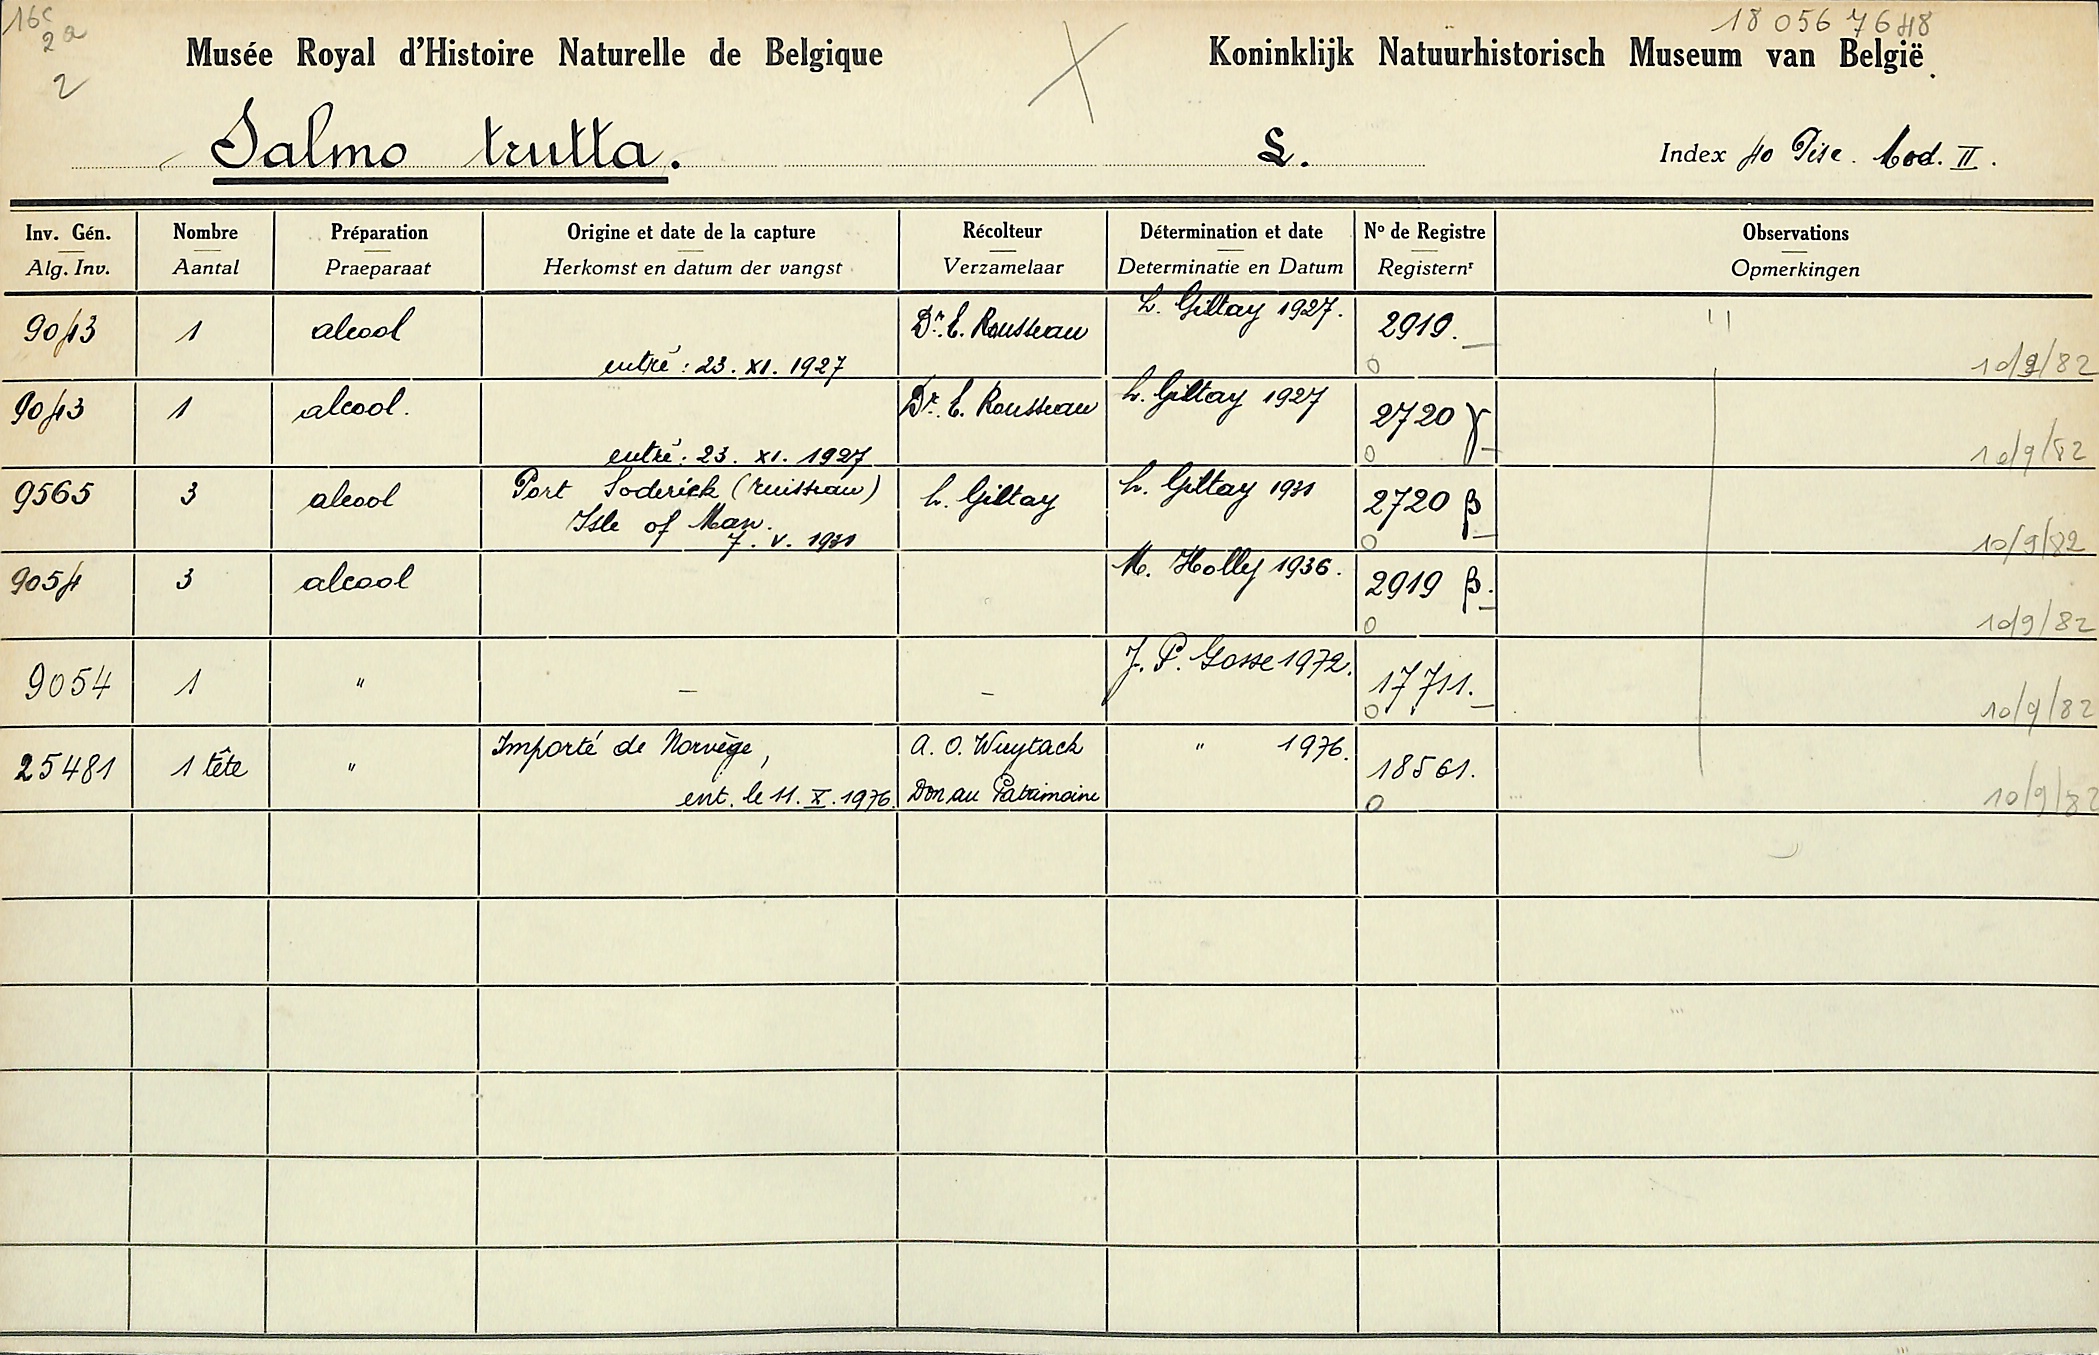 16c 18 056 7648
2a
2
Musée Royal d'Histoire Naturelle de Belgique Koninklijk Natuurhistorisch Museum van België
Salmo trutta. L. Index 40 Pisc. Cod. II.
Inv. Gén. Nombre Préparation Origine et date de la capture Récolteur Détermination et date No de Registre Observations
Alg. Inv. Aantal Praeparaat Herkomst en datum der vangst Verzamelaar Determinatie en Datum Registernr Opmerkingen
9043 1 alcool Dr. E. Rousseau L. Giltay 1927. 2919.
entré : 23. XI. 1927 0 10/9/82
9043 1 alcool. Dr. E. Rousseau L. Giltay 1927 2720 γ
entré : 23. XI. 1927 0 10/9/82
9565 3 alcool Port Soderick (ruisseau) L. Giltay L. Giltay 1931 2720 β
Isle of Man.
7. V. 1931 0 10/9/82
9054 3 alcool M. Holly 1936. 2919 β.
0 10/9/82
9054 1 " – – J. P. Gosse 1972. 17711.
0 10/9/82
25481 1 tête " Importé de Norvège, A. O. Wuytack " 1976. 18561.
ent. le 11. X. 1976. Don au Patrimoine 0 10/9/82